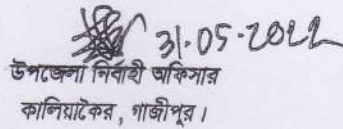 31.05.2022
উপজেলা নির্বাহী অফিসার
কালিয়াকৈর, গাজীপুর।